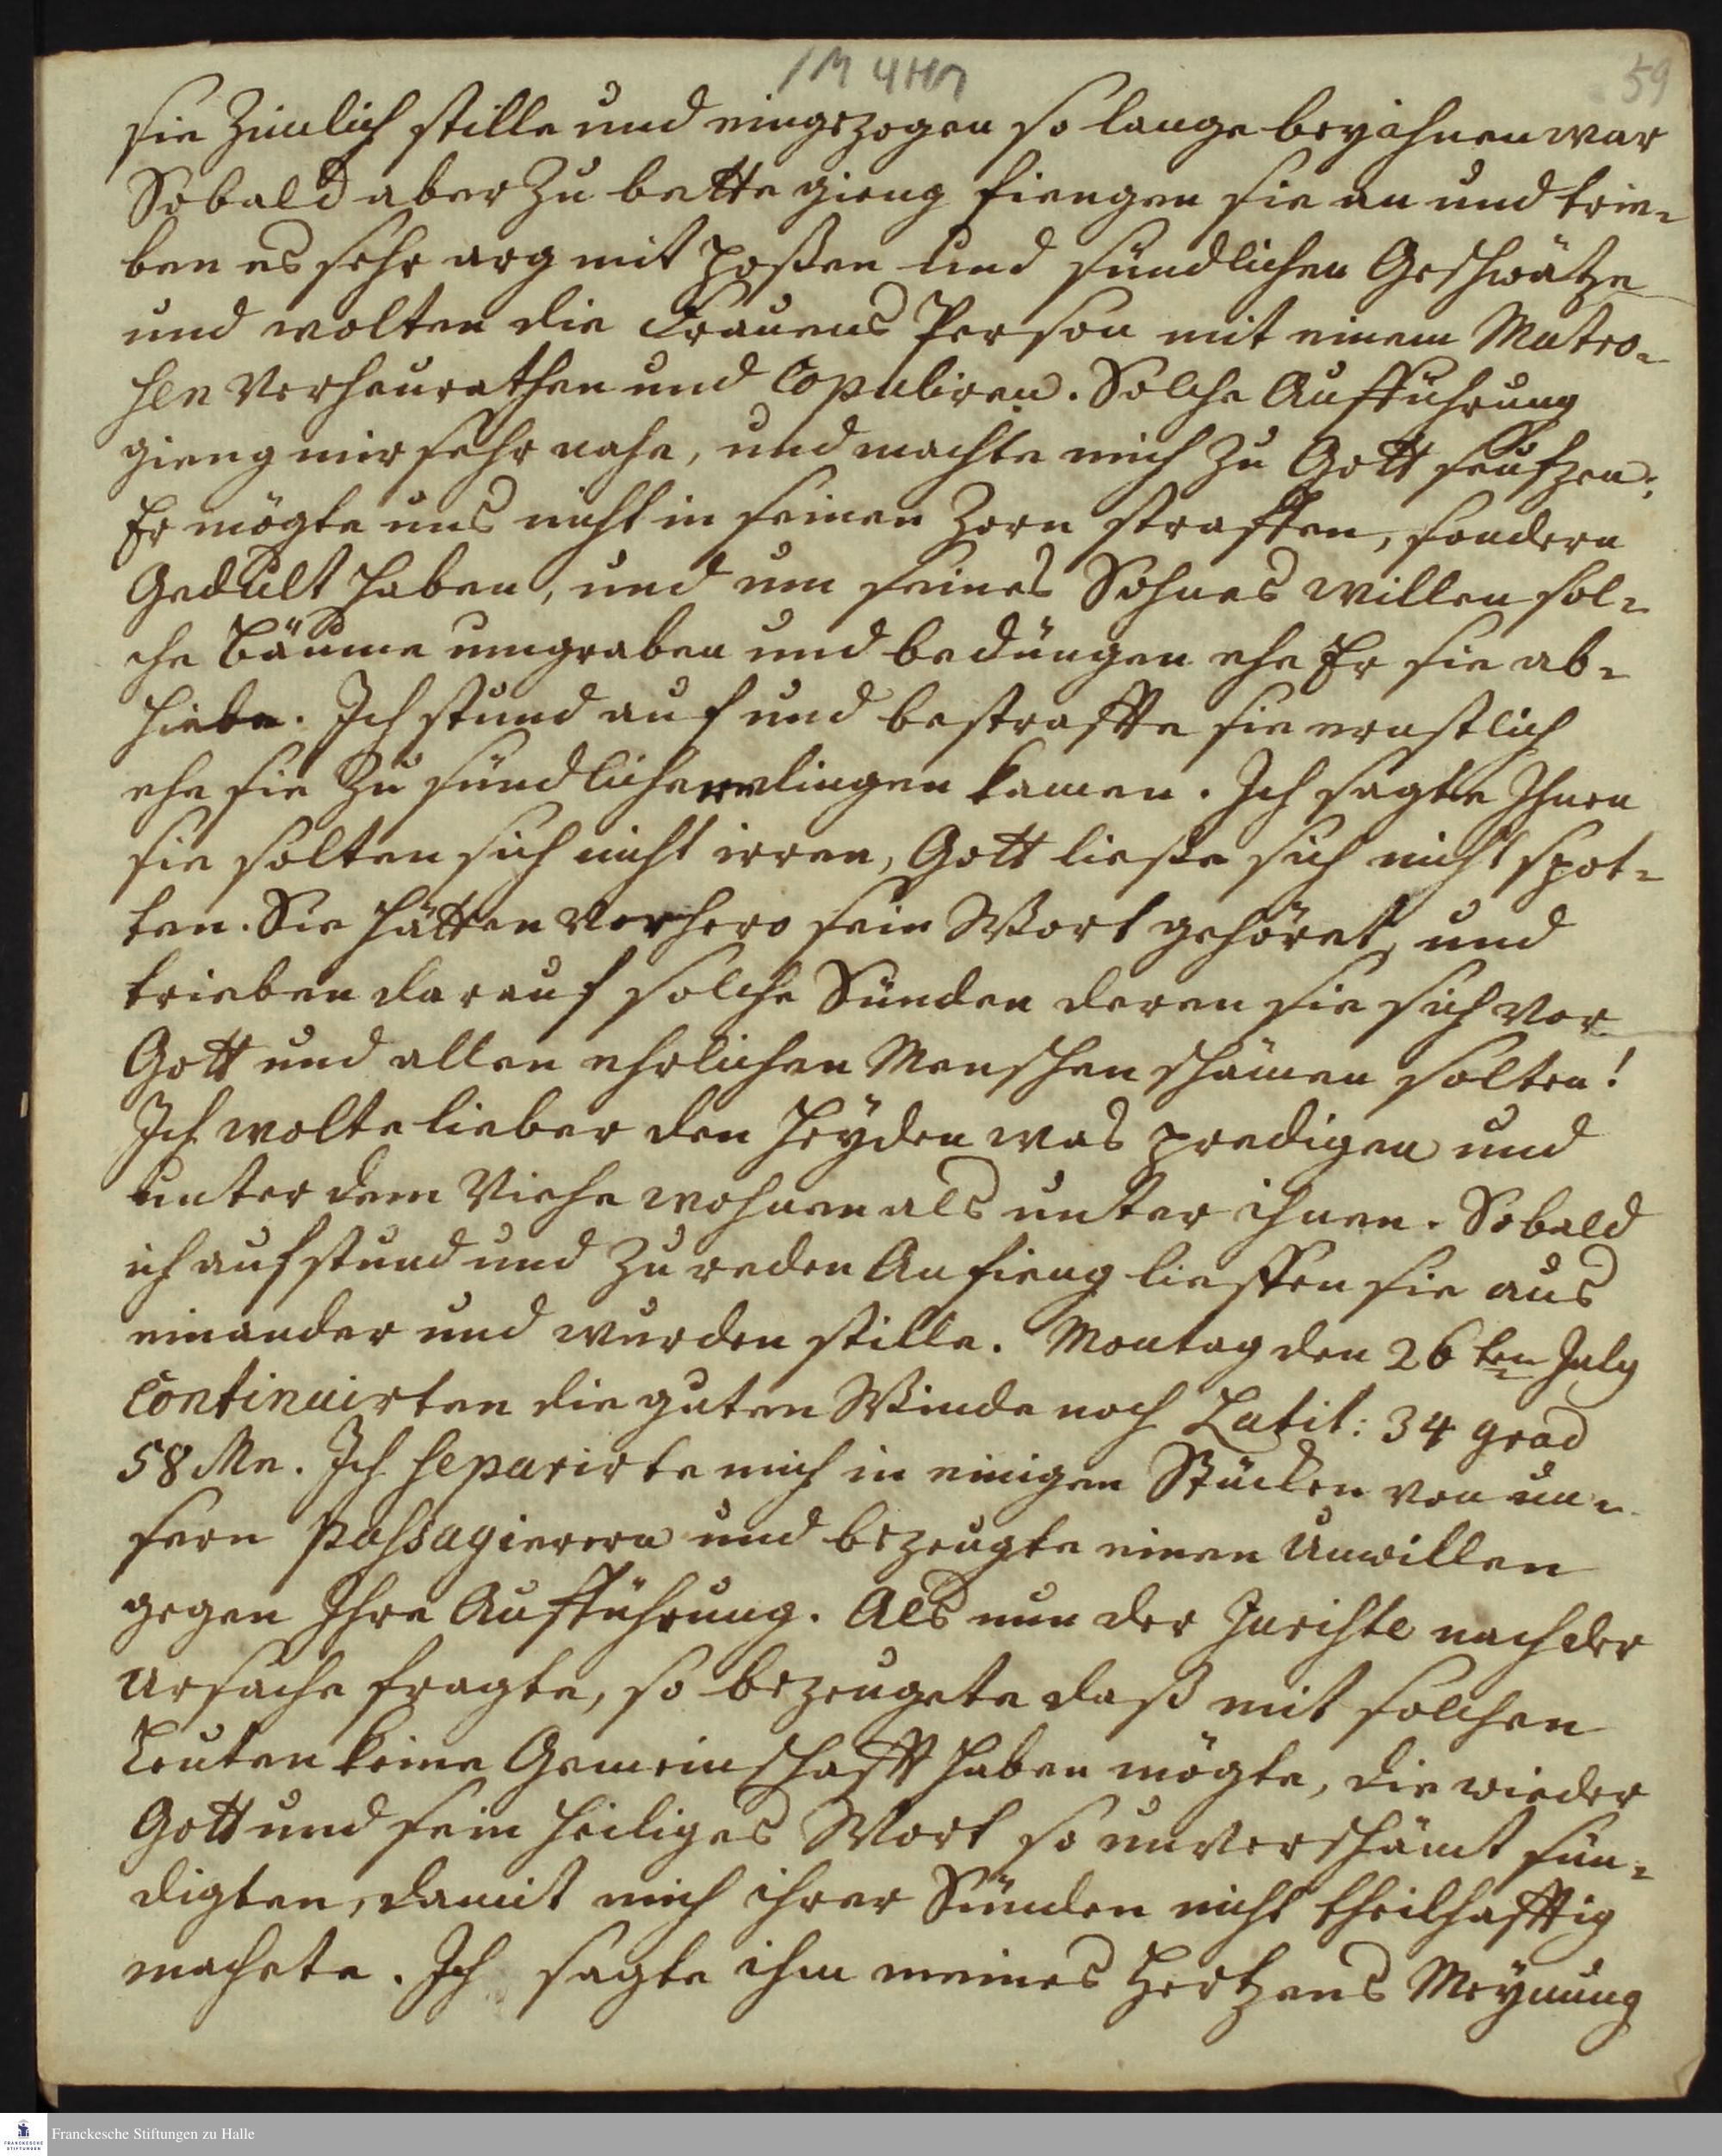 1M 4H7
59
sie zimlich stille und eingezogen so lange bey ihnen war
Sobald aber zu bette gieng fiengen sie an und trie-
ben es sehr arg mit Poßen und sündlichen Geschwätze
und wolten die Frauens Person mit einem Matro-
sen verheurathen und Copuliren. Solche Aufführung
gieng mir sehr nahe, und machte mich zu Gott seufzen:
Er mögte uns nicht in seinen Zorn straffen, sondern
Gedult haben, und um seines Sohnes willen sol-
che Bäume umgraben und bedüngen ehe Er sie ab-
hiebe. Ich stund auf und bestraffte sie ernstlich
ehe sie zu sündlichern dingen kamen. Ich sagte Ihnen
sie solten sich nicht irren, Gott ließe sich nicht spot-
ten. Sie hätten vorhero sein Wort gehöret, und
trieben darauf solche Sünden deren sie sich vor
Gott und allen ehrlichen Menschen schämen solten!
Ich wolte lieber den Heyden was predigen und
unter dem Viehe wohnen als unter ihnen. Sobald
ich aufstund und zu reden Anfieng lieffen sie aus
einander und wurden stille. Montag den 26ten July
Continuirten die guten Winde noch Latit: 34 grad
58 Mn. Ich separirte mich in einigen Stücken von un-
sern Passagierern und bezeugte einen Unwillen
gegen Ihre Aufführung. Als nun der Juriste nach der
Ursache fragte, so bezeugete daß mit solchen
Leuten keine Gemeinschafft haben mögte, die wieder
Gott und sein heiliges Wort so unverschämt sün-
digten, damit mich ihrer Sünden nicht theilhafftig
machete. Ich sagte ihm meines Hertzens Meynung
Franckesche Stiftungen zu Halle